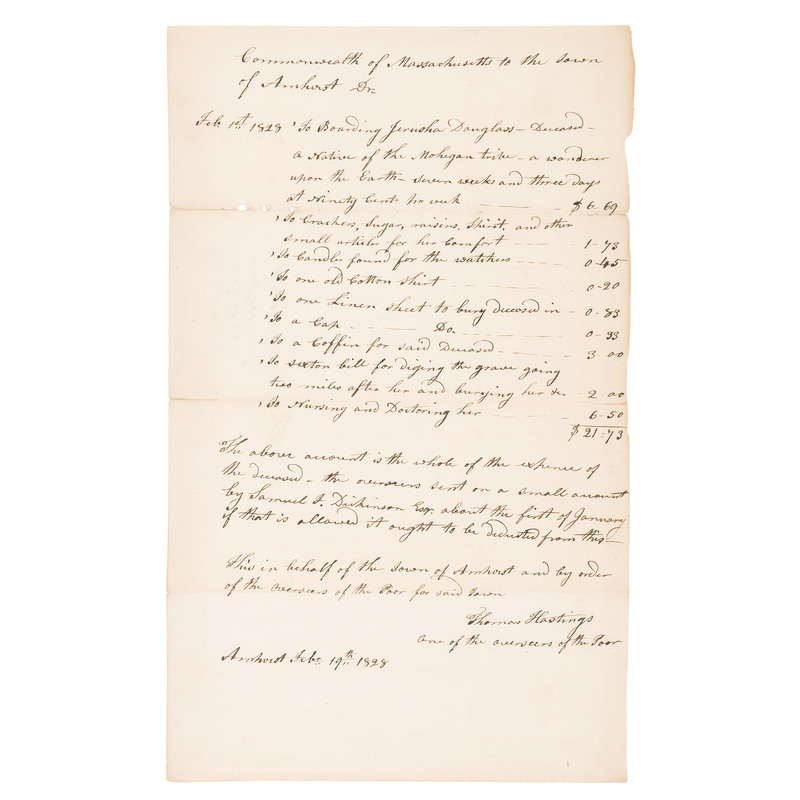 Commonwealth of Massachusetts to the town
of Amherst Dr
Feb. 1st 1828 To Boarding Jerusha Douglass - Deceased -
a Native of the Mohegan tribe - a wanderer
upon the Earth - seven weeks and three days
at Ninety Cents pr week - $6-69
To Crackers, Sugar, raisins, Spirit, and other
small articles for her Comfort - 1-73
To Candles found for the watchers - 0-45
To one old Cotton shirt - 0-20
To one Linen sheet to bury deceased in - 0-83
To a Cap - Do. - 0-33
To a Coffin for said Deceased - 3-00
To sexton bill for diging the grave going
two miles after her and burying her &c. - 2-00
To Nursing and Doctoring her - 6-50
$21-73
The above account is the whole of the expence of
the deceased - the overseers sent on a small account
by Samuel F. Dickinson Esqr. about the first of January
if that is allowed it ought to be deducted from this -
This in behalf of the town of Amherst and by order
of the overseers of the Poor for said town
Thomas Hastings
one of the overseers of the Poor
Amherst Feby. 19th 1828